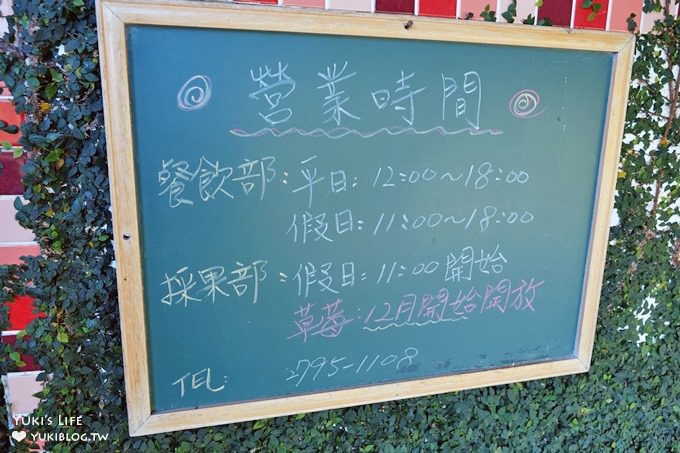 營業時間
餐飲部：平日：12:00～18:00
假日：11:00～18:00
採果部：假日：11:00 開始
草莓：12月開始開放
TEL: 2795-1108
YUKI's LIFE
YUKIBLOG.TW